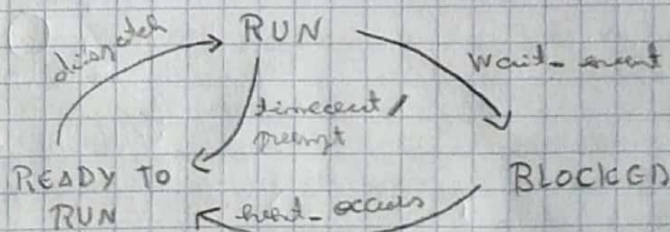 dispatch
RUN
Wait_event
timeout /
preempt
READY TO
RUN
BLOCKED
event_occurs